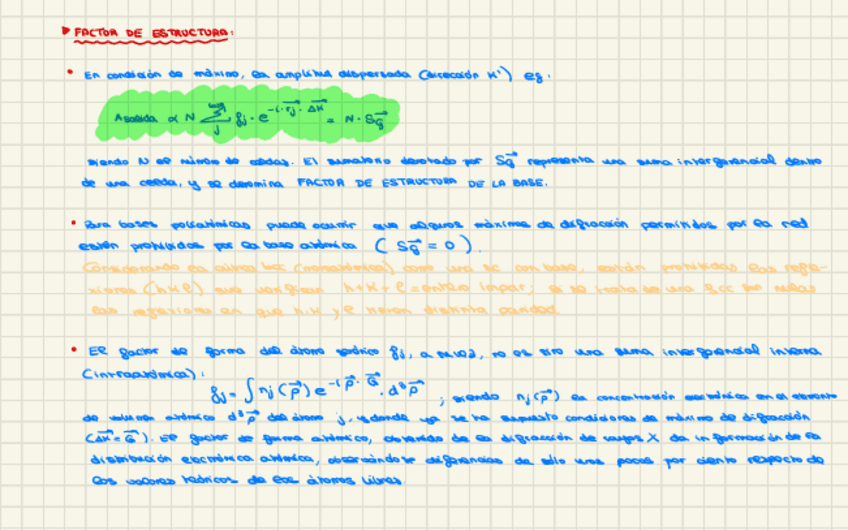 FACTOR DE ESTRUCTURA:
• En condición de máximo, la amplitud dispersada (dirección K') es:
Asalida ∝ N Σ_j fj · e^(-i · r⃗j · ΔK⃗) = N · S_G⃗
siendo N el número de celdas. El sumatorio denotado por S_G⃗ representa una suma interferencial dentro
de una celda, y se denomina FACTOR DE ESTRUCTURA DE LA BASE.
• Para bases poliatómicas puede ocurrir que algunos máximos de difracción permitidos por la red
estén prohibidos por la base atómica ( S_G⃗ = 0 ).
Considerando la única bcc (monoatómica) como una sc con base, están prohibidas las refle-
xiones (hkl) que verifican h+k+l = entero impar; si se trata de una fcc son nulas
las reflexiones en que h, k y l tienen distinta paridad.
• El factor de forma del átomo fj, a su vez, no es sino una suma interferencial interna
(intraatómica):
fj = ∫ nj(ρ⃗) e^(-i ρ⃗ · G⃗) · d³ρ⃗ ; siendo nj(ρ⃗) la concentración electrónica en el elemento
de volumen atómico d³ρ⃗ del átomo j, y donde ya se ha supuesto condiciones de máximo de difracción
(ΔK⃗ = G⃗). El factor de forma atómico, obtenido de la difracción de rayos X da información de la
distribución electrónica atómica, observándose diferencias de sólo unos pocos por ciento respecto de
los valores teóricos de los átomos libres.